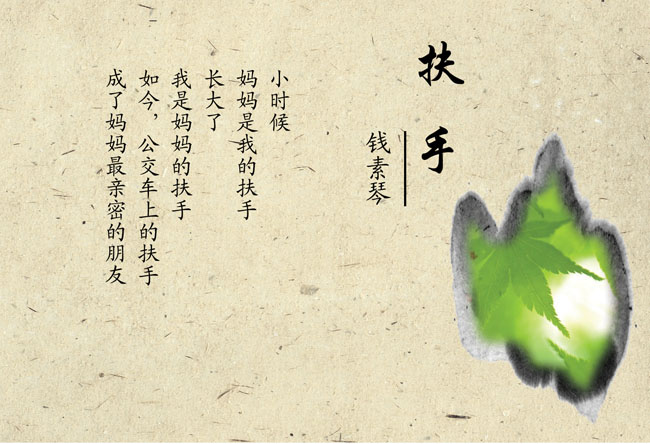 扶手
钱素琴
小时候
妈妈是我的扶手
长大了
我是妈妈的扶手
如今，公交车上的扶手
成了妈妈最亲密的朋友